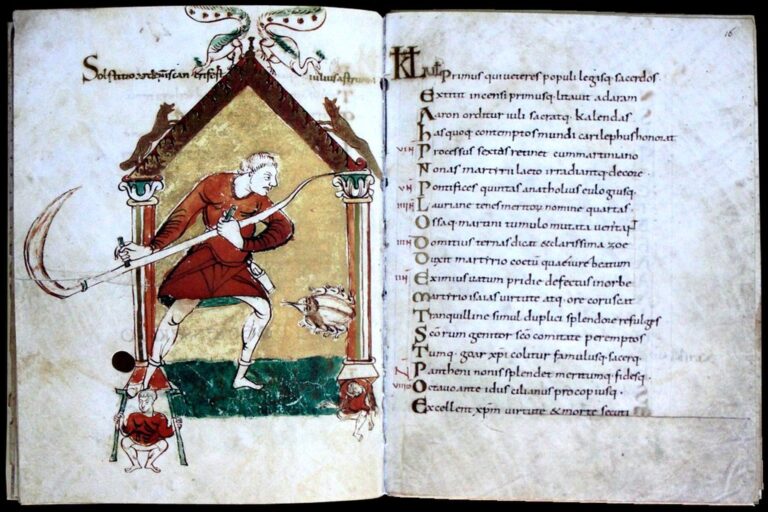 Solstitio ardens cancri fert iulius astrum
16
KL Iul Primus qui veteres populi legisq; sacerdos
Extitit incensi primusq; litavit ad aram
Aaron orditur iuli sacratq; kalendas
Hasquoq contemptos mundi carilephus honorat
VIII Processus sextas retinet cum martiniano
Nonas martirii laeto irradiantq; decore
VII Pontifices quintas anatholius eulogiusq;
IIII Lauriane tenes meritor nomine quartas
Ossaq; martini tumulo mutata veritatur
III Domitius ternas dicat & clarissima zoe
Duxit martirio coctum quaevire beatum
III Eximius vatum pridie defectus in orbe
Martirio isaias virtute atq; ore coruscat
Tranquilline simul duplici splendore refulges
Scorum genitor sco comitate peremptos
Tunq; goar xpi colitur famulusq; sacerq;
N Pantheni nonus splendet meritumq; fidesq;
VIII Octavo ante idus cilianus procopiusq;
Excellent xpm virtute & morte secuti